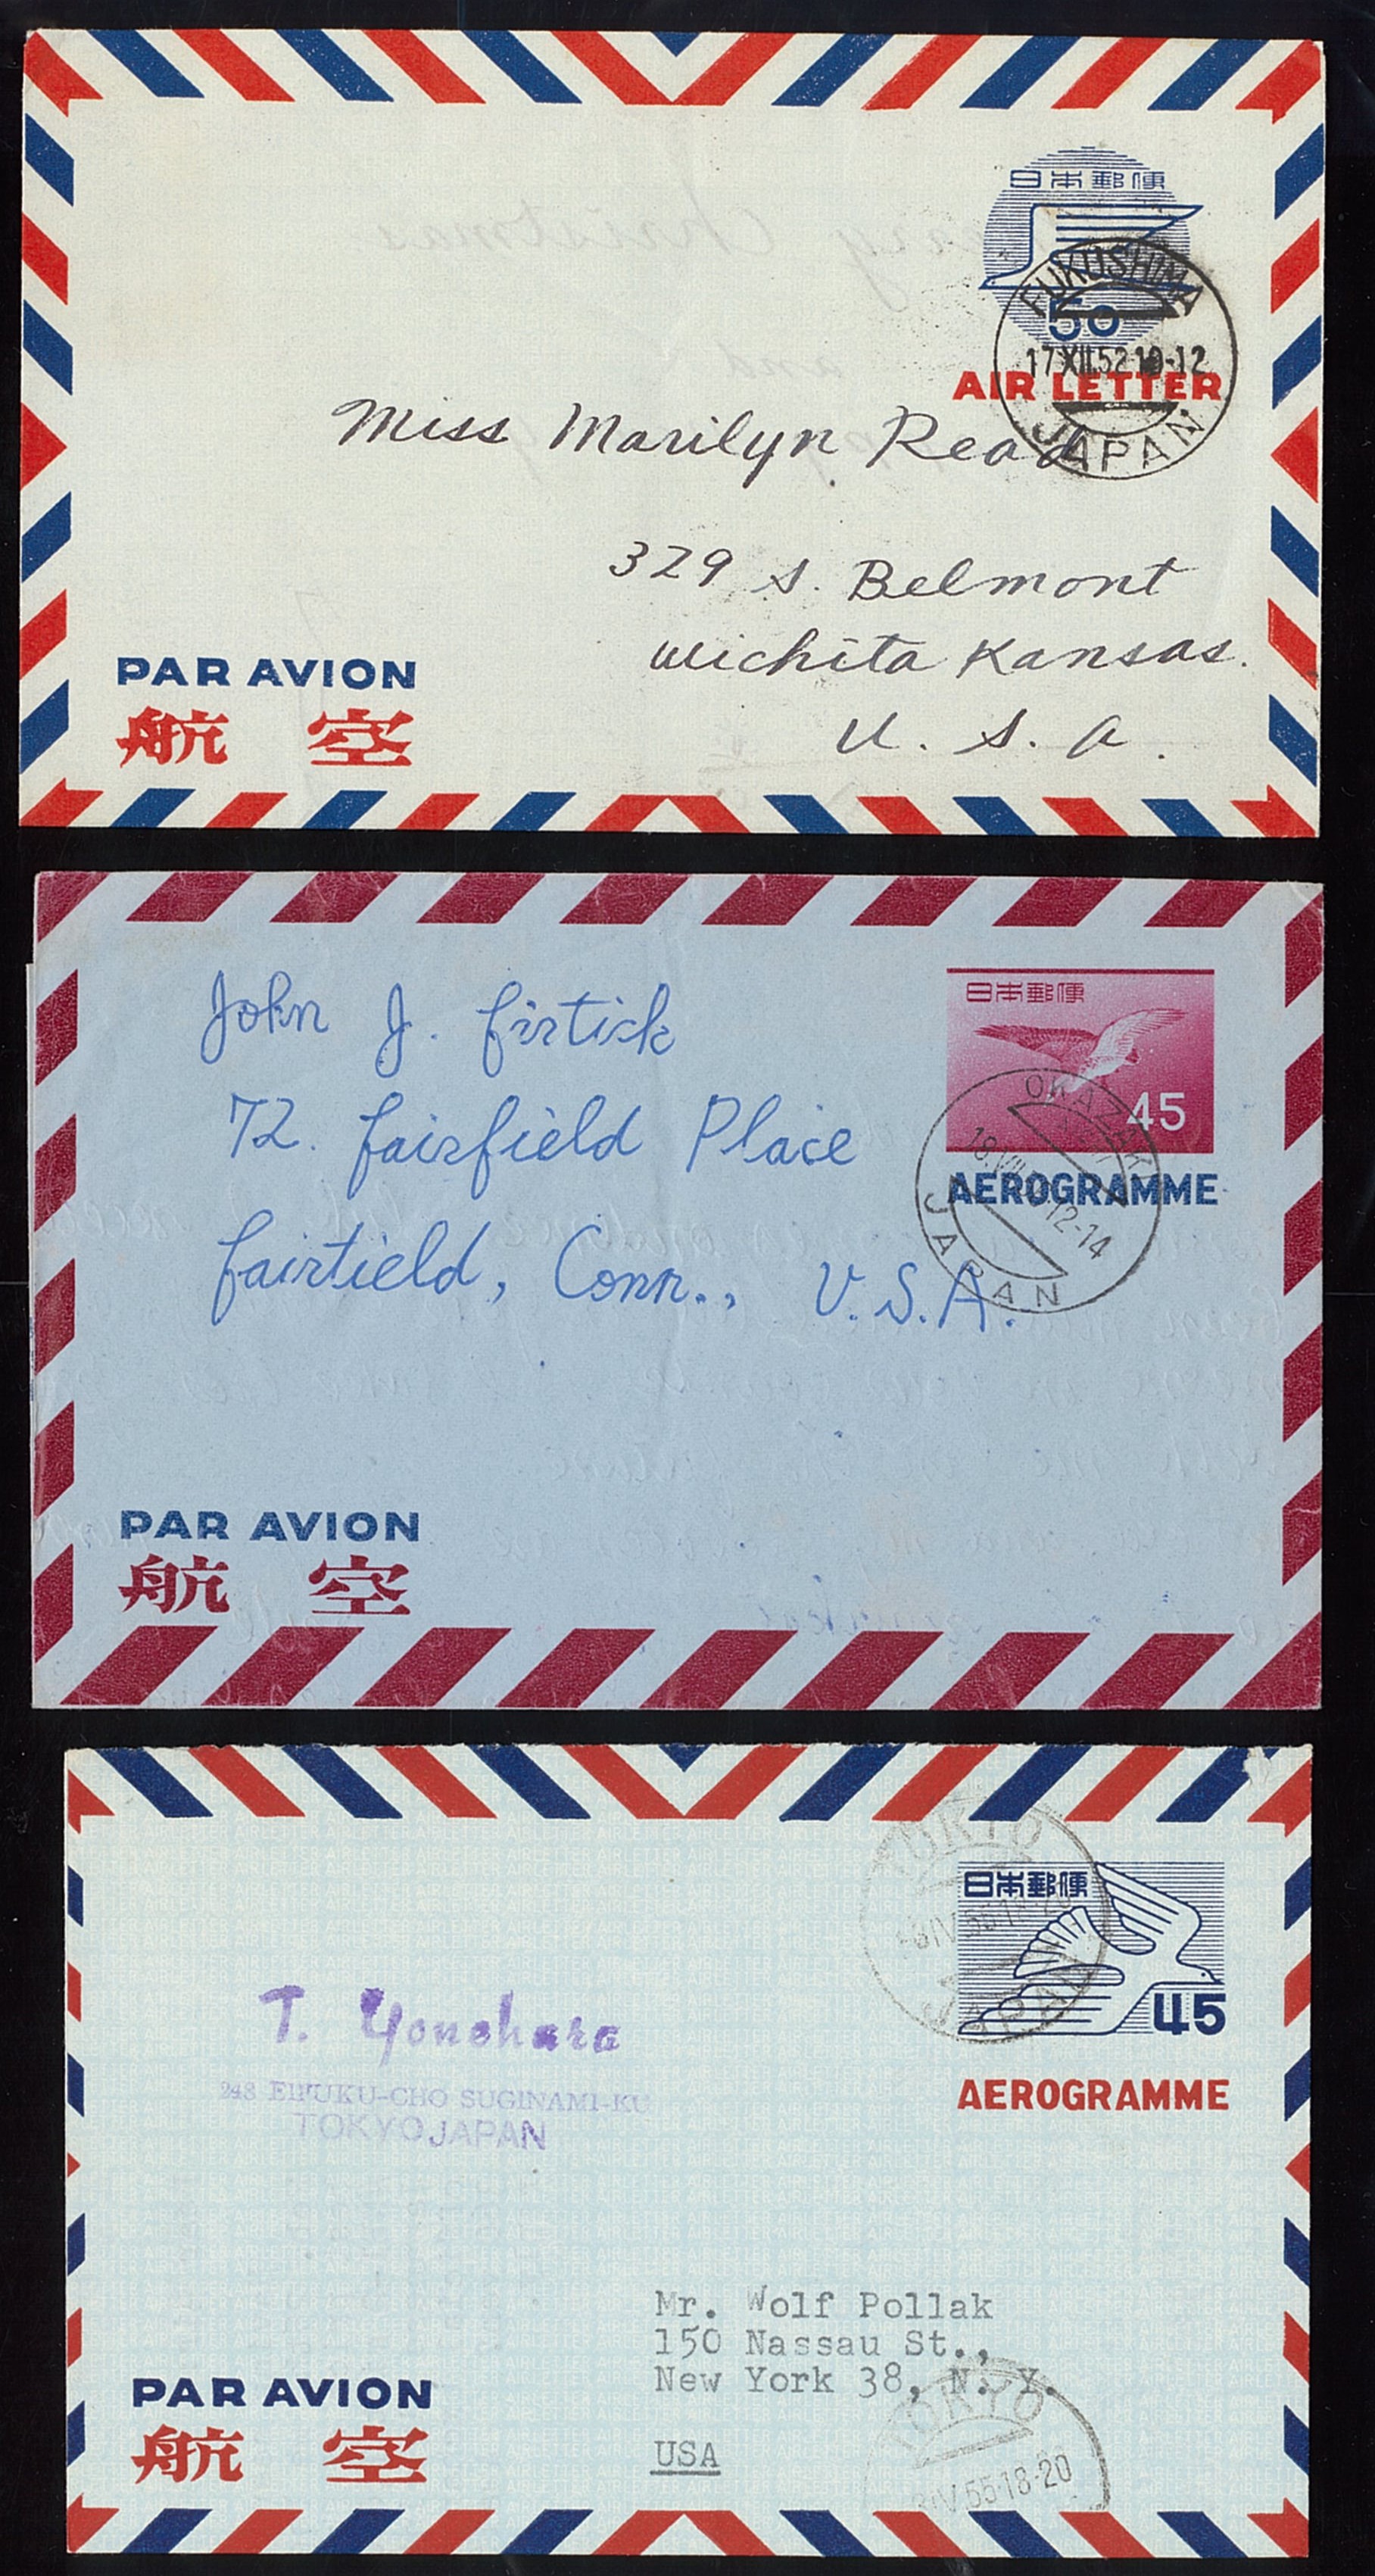 日本郵便
50
AIR LETTER
FUKUSHIMA
17.XII.52 10-12
JAPAN
Miss Marilyn Read
329 S. Belmont
Wichita Kansas.
U. S. A.
PAR AVION
航 空
日本郵便
45
AEROGRAMME
OKAZAKI
12-14
JAPAN
John J. Firtick
72. Fairfield Place
Fairfield, Conn., U.S.A.
PAR AVION
航 空
TOKYO
JAPAN
日本郵便
45
AEROGRAMME
T. Yonehara
248 EIFUKU-CHO SUGINAMI-KU
TOKYO JAPAN
Mr. Wolf Pollak
150 Nassau St.,
New York 38, N. Y.
USA
TOKYO
IV.55.18-20
PAR AVION
航 空